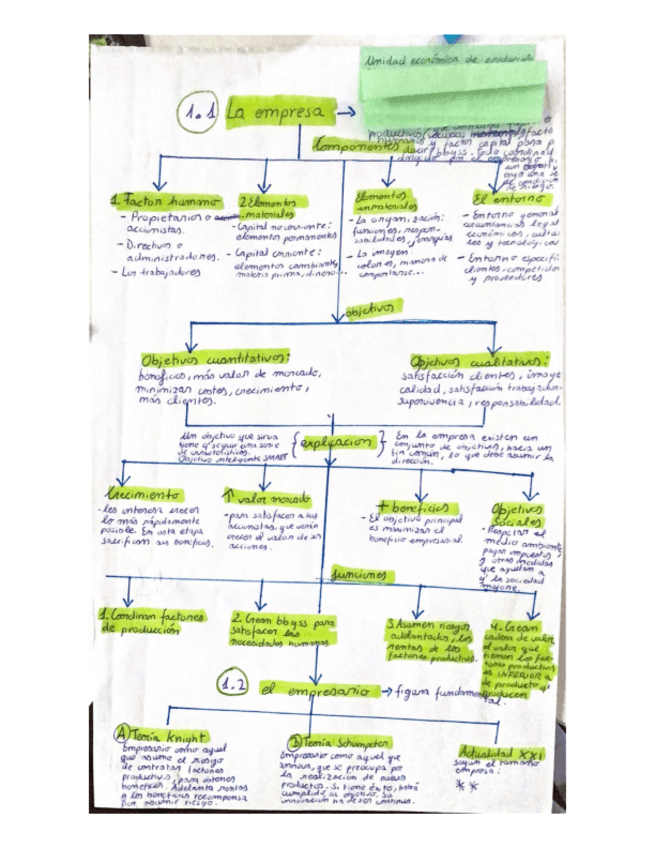 Unidad económica de producción
1.1 La empresa →
Componentes
1. Factor humano
- Propietarios o
accionistas.
- Directivos o
administradores.
- Los trabajadores
2. Elementos
materiales
- Capital no corriente:
elementos permanentes
- Capital corriente:
elementos cambiantes,
materia prima, dinero...
Elementos
inmateriales
- La organización:
funciones, respon-
sabilidades, jerarquías
- La imagen:
colores, manera de
comportarse...
El entorno
- Entorno general
circunstancias legal
económicos, cultu
les y tecnológicas
- Entorno específi
clientes, competido
y proveedores
objetivos
Objetivos cuantitativos:
beneficios, más valor de mercado,
minimizar costes, crecimiento,
más clientes.
Objetivos cualitativos:
satisfacción clientes, image
calidad, satisfacción trabajador
supervivencia, responsabilidad
Un objetivo que sirva
tiene q' seguir una serie
de características.
Objetivo inteligente SMART
{explicación}
En la empresa existen un
conjunto de objetivos, hacia un
fin común, lo que debe asumir la
dirección.
Crecimiento
- les interesa crecer
lo más rápidamente
posible. En esta etapa
sacrifican sus beneficios.
↑ valor mercado
- para satisfacer a sus
accionistas, que verán
crecer el valor de sus
acciones.
+ beneficios
- El objetivo principal
es maximizar el
beneficio empresarial.
Objetivos
Sociales
- Respetar el
medio ambiente,
pagar impuestos
y otras medidas
que ayudan a
q' la sociedad
mejore.
funciones
1. Coordinan factores
de producción
2. Crean bbyss para
satisfacer las
necesidades humanas.
3. Asumen riesgos
adelantados, las
rentas de los
factores productivos.
4. Crean
cadena de valor
el valor que
tienen los fac-
tores productivos
es INFERIOR a
de producto q'
producen
1.2 el empresario → figura fundamental.
A) Teoría Knight
Empresario como aquel
que asume el riesgo
de contratar factores
productivos, para obtener
beneficios. Adelanta rentas
y los beneficios recompensa
por asumir riesgo.
B) Teoría Schumpeter
Empresario como aquel que
innova, que se preocupa por
la realización de nuevos
productos. Si tiene éxito, habrá
cumplido su objetivo. Su
innovación ha de ser continua.
Actualidad XXI
según el tamaño
empresa:
**